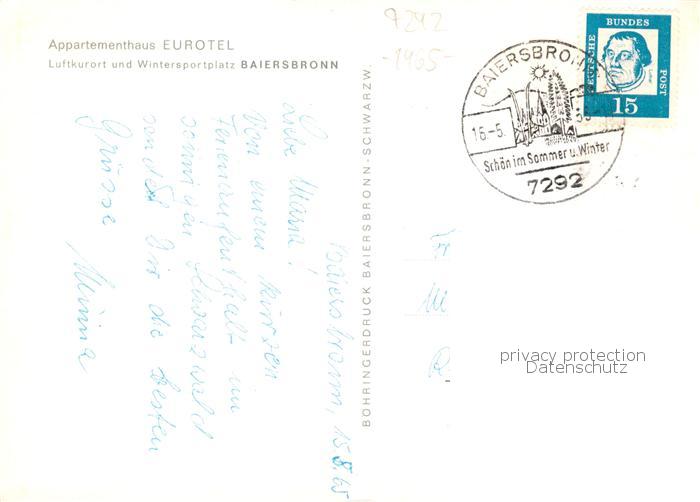 Appartementhaus EUROTEL
Luftkurort und Wintersportplatz BAIERSBRONN
7292
-1965-
BAIERSBRONN
16.-5.
Schön im Sommer u. Winter
7292
DEUTSCHE
BUNDES
POST
15
Baiersbronn, 15.5.65
Liebe Maria!
Von einem kurzen
Ferienaufenthalt im
sonnigen Schwarzwald
sendet Dir die besten
Grüsse
Minna
BÖHRINGERDRUCK BAIERSBRONN - SCHWARZW.
privacy protection
Datenschutz